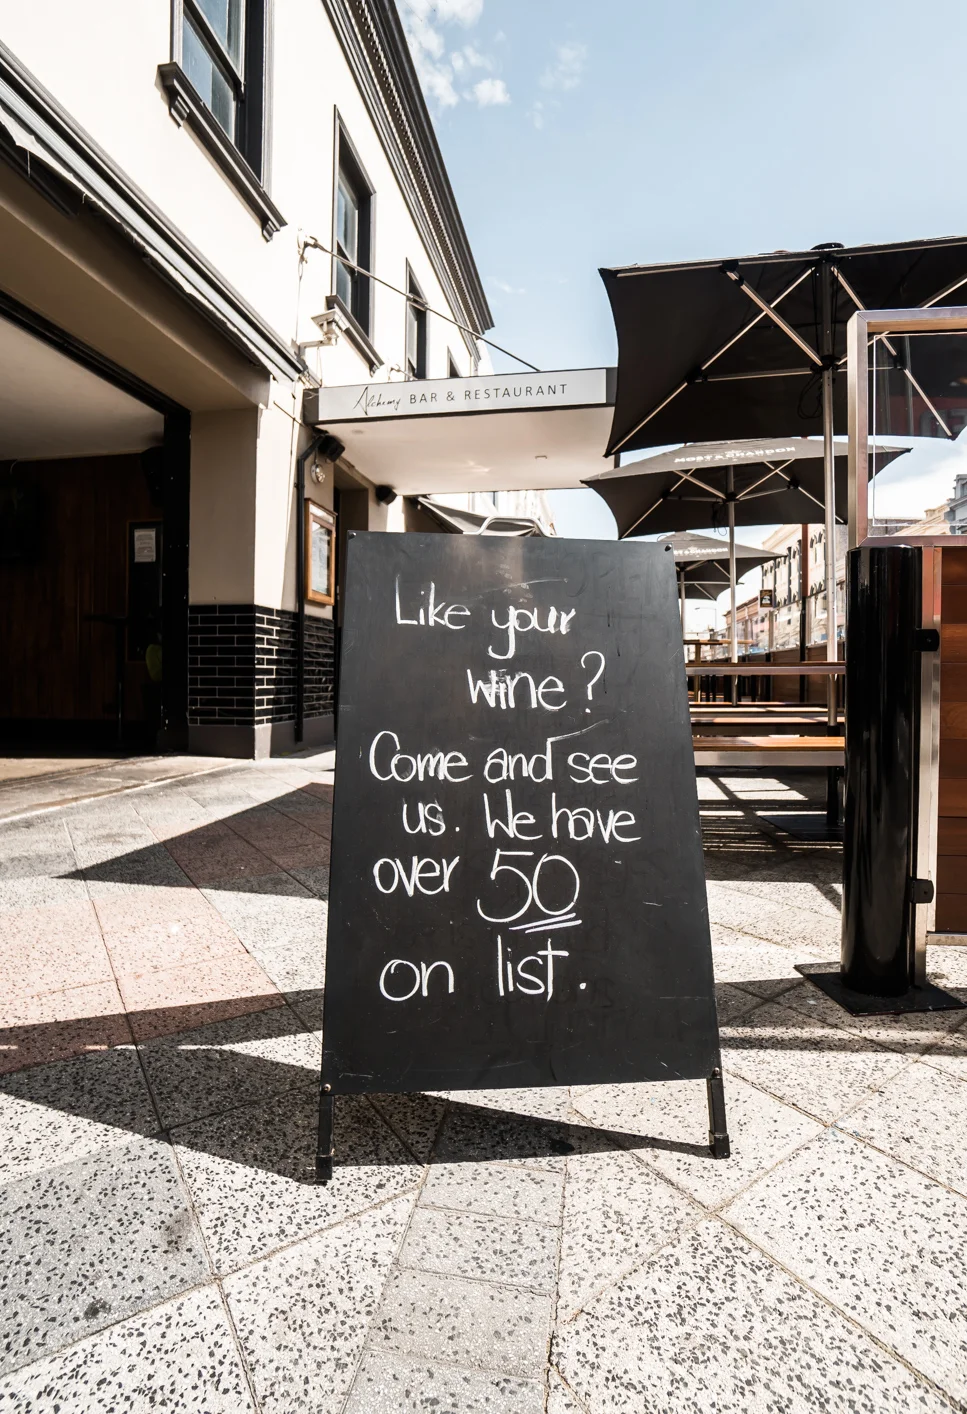 Alchemy BAR & RESTAURANT
Like your
wine?
Come and see
us. We have
over 50
on list.